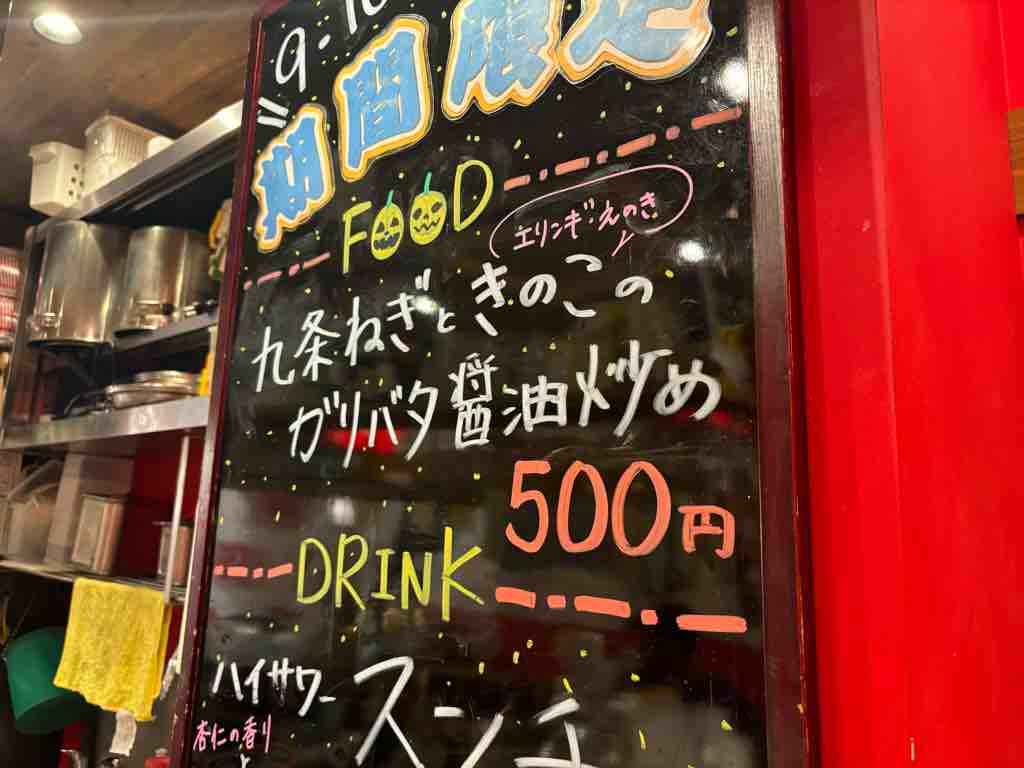 9.10
期間限定
FOOD
エリンギ・えのき
九条ねぎときのこの
ガリバタ醤油炒め
500円
DRINK
ハイサワー
杏仁の香り